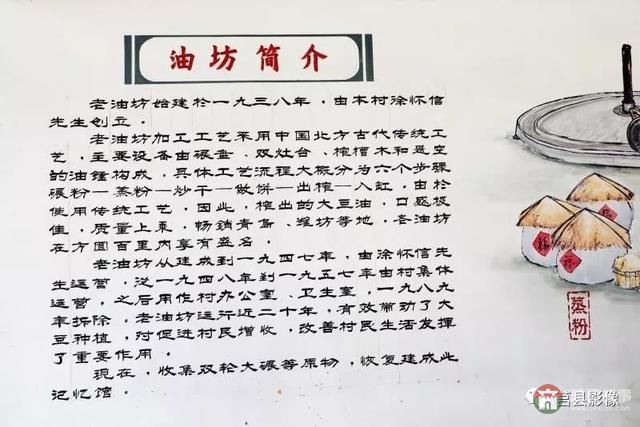 油坊简介
老油坊始建於一九三八年，由本村涂怀信
先生创立。
老油坊加工工艺采用中国北方古代传统工
艺，主要设备由碾盘、双灶台、榨槽木和悬空
的油锤构成，具体工艺流程大概分为六个步骤
碾粉一蒸粉一炒干一做饼一出榨一入缸。由於
使用传统工艺，因此，榨出的大豆油，口感极
佳，质量上乘，畅销青岛、潍坊等地，各油坊
在方圆百里内享有盛名。
老油坊从建成到一九四七年，由涂怀信先
生运营，从一九四八年到一九五七年由村集体
运营，之后用作村办公室、卫生室，一九八九
年拆除。老油坊运行近二十年，有效带动了大
豆种植，对促进村民增收，改善村民生活发挥
了重要作用。
现在，收集双轮大碾等原物，恢复建成此
记忆馆。
蒸粉
莒县影像